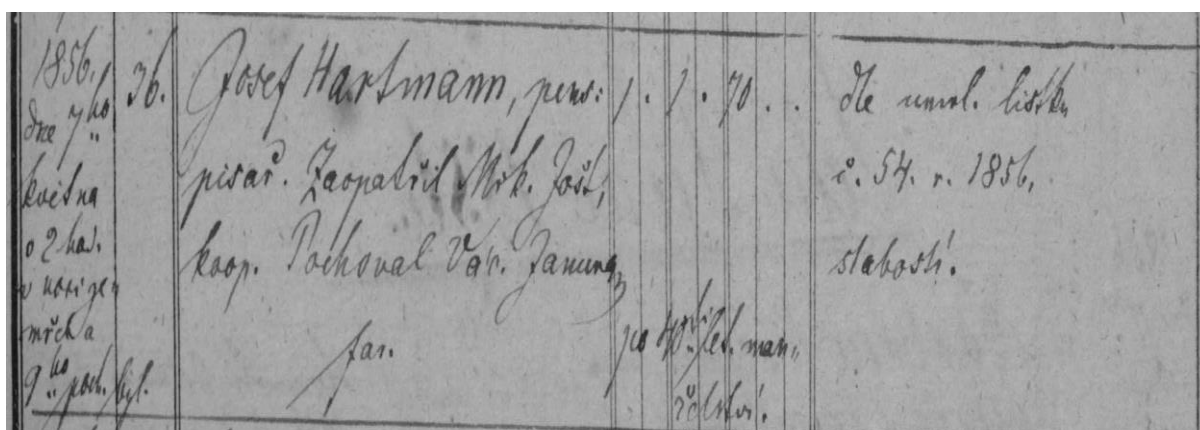 1856.
dne 7ho
května
o 2 hod.
v noci zem
mřel a
9ho poch. byl.
36.
Josef Hartmann, pens:
pisař. Zaopatřil Mik. Jošt,
koop. Pochoval Vác. Janura,
far.
1. 1. 70 . .
po 40ti let. man„
želství.
dle umrl. listku
č. 54. r. 1856.
slabostí.